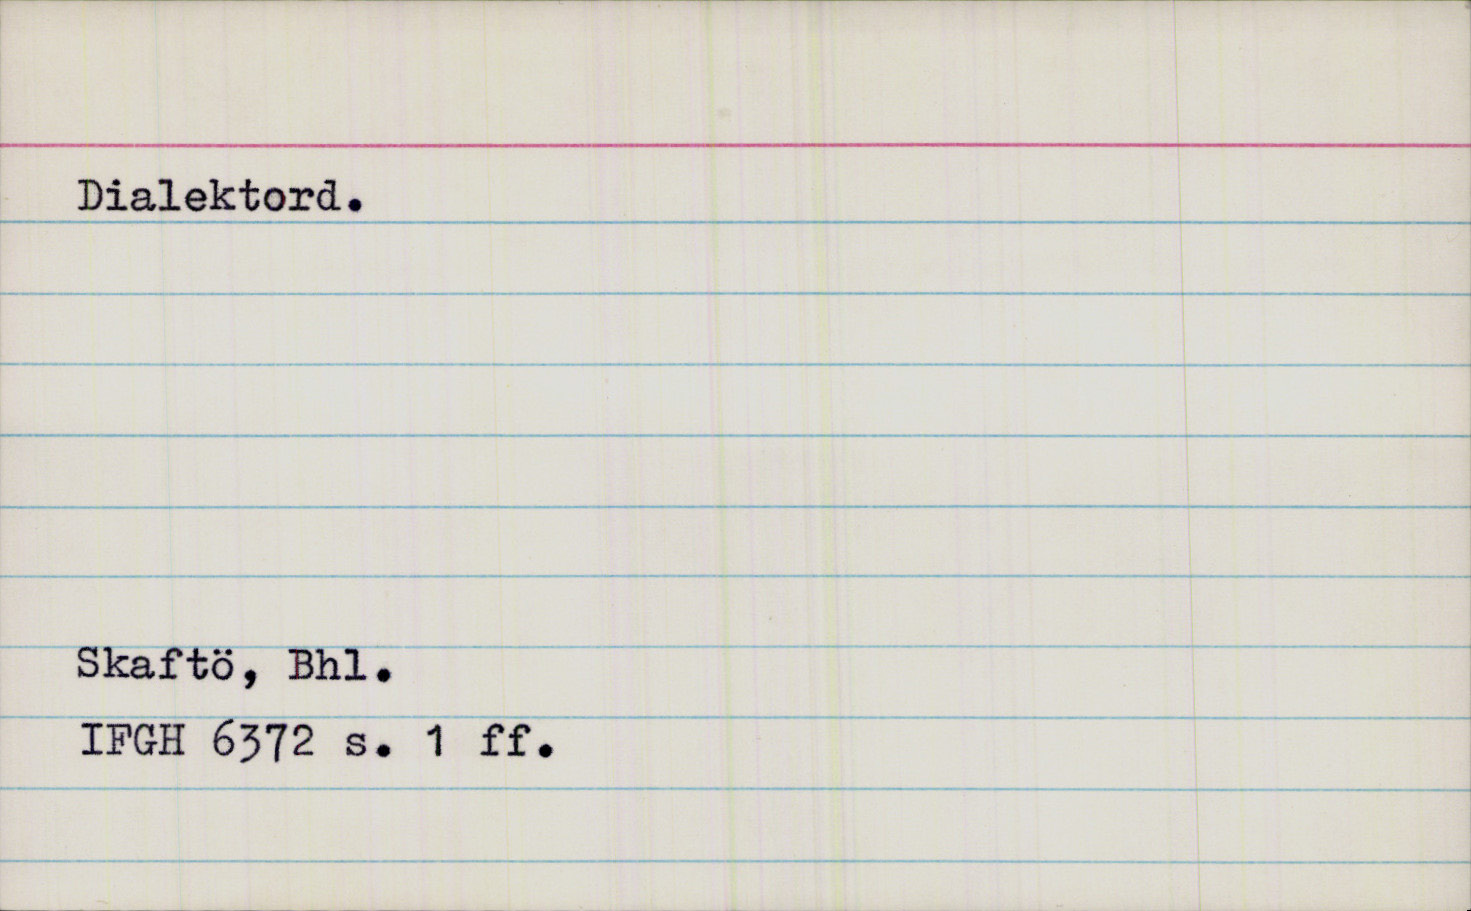 Dialektord.
Skaftö, Bhl.
IFGH 6372 s. 1 ff.